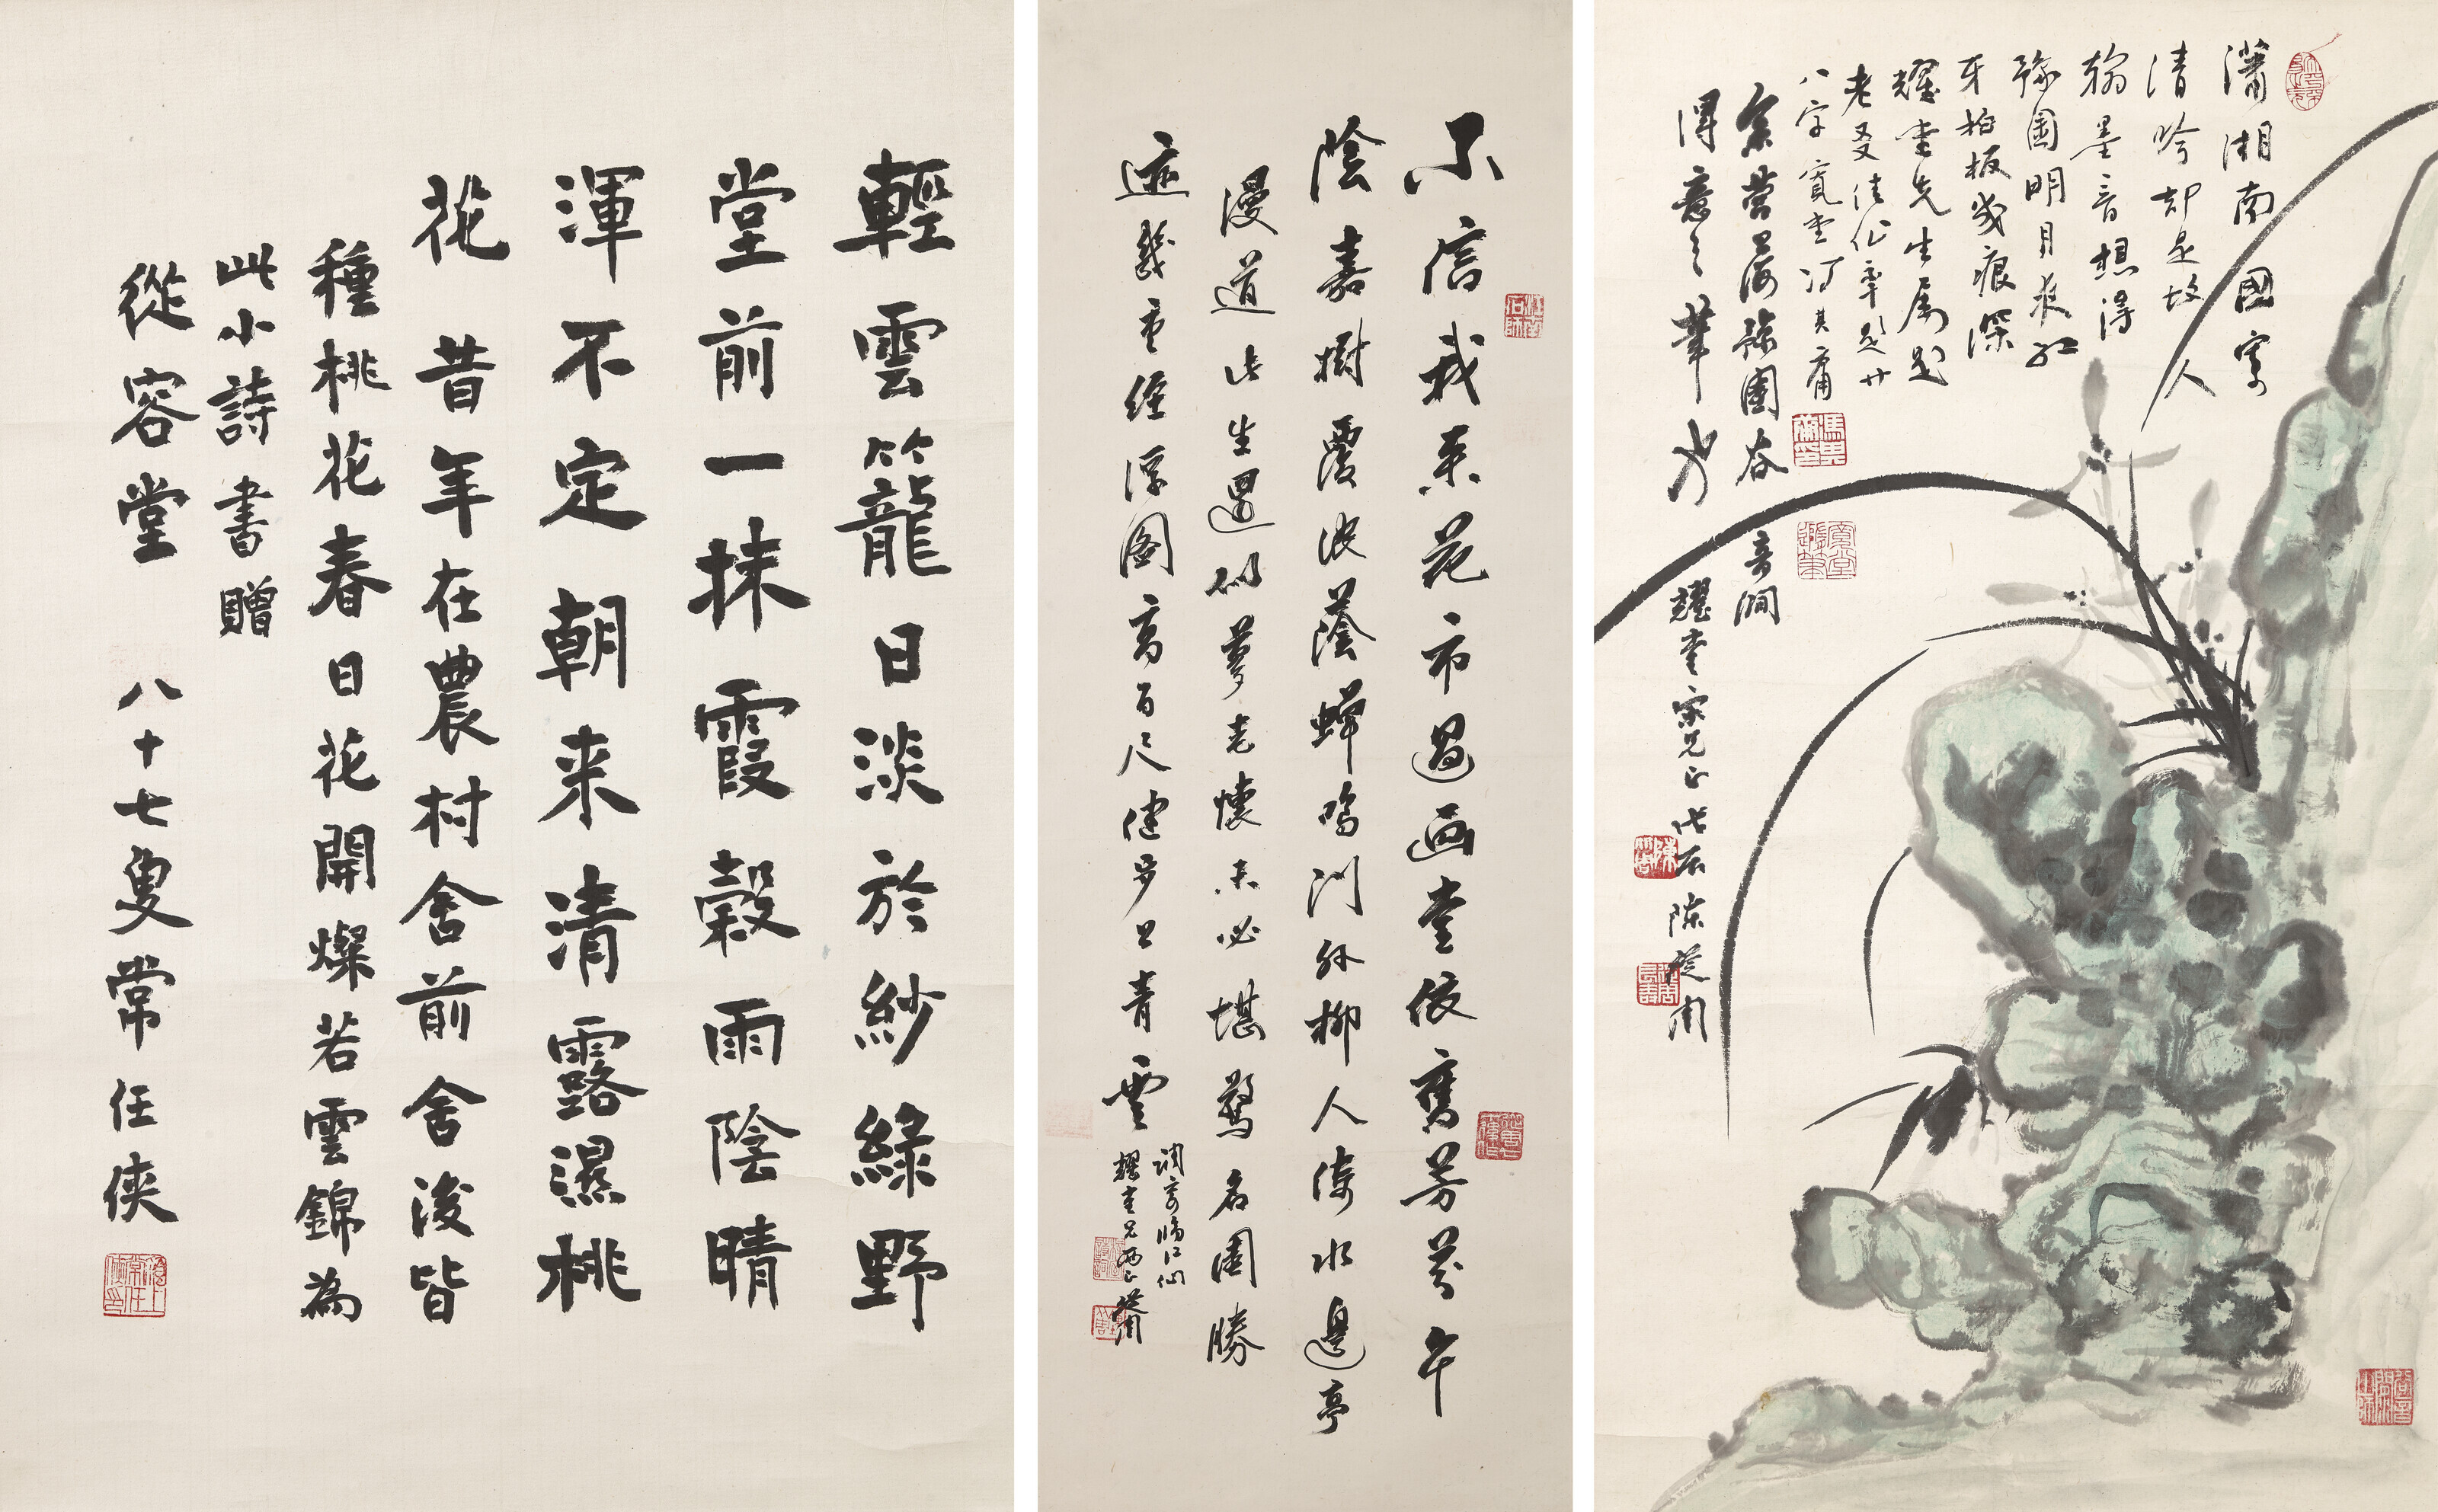 輕雲籠日淡於紗綠野
堂前一抹霞縠雨陰晴
渾不定朝来清露濕桃
花 昔年在農村舍前舍後皆
種桃花春日花開燦若雲錦為
此小詩書贈
從容堂 八十七叟常任俠
不信我来花市過畫堂依舊芳芬午
陰嘉樹覆波蔭蟬鳴門外柳人倚水邊亭
漫道此生過似夢老懷未必堪驚名園勝
迹幾重經浮圖高百尺健步上青雲
調寄臨江仙
耀堂兄兩正 從周
瀟湘南國寄
清吟却是故人
翰墨香想得
豫園明月夜紅
牙拍板幾痕深
耀堂先生屬題
老友佳作率題廿
八字寬堂馮其庸
余營海豫園谷音澗
得意之筆也
耀堂宗兄正 陳從周